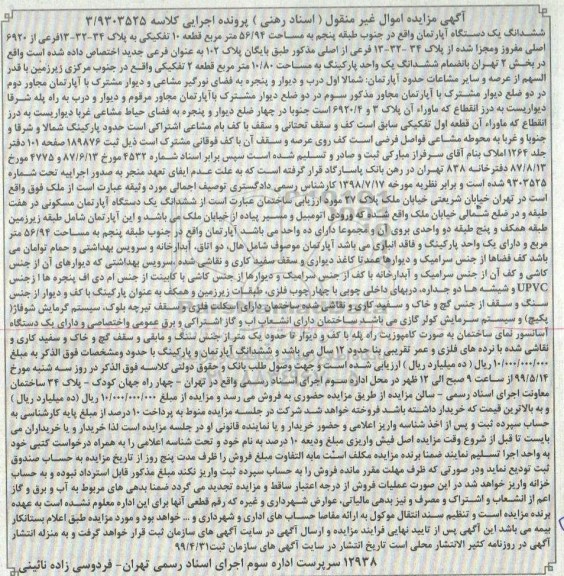 آگهی مزایده اموال غیر منقول ( اسناد رهنی ) پرونده اجرایی کلاسه ۳/۹۳۰۳۵۲۵
ششدانگ یک دستگاه آپارتمان واقع در جنوب طبقه پنجم به مساحت ۵۶/۹۴ متر مربع قطعه ۱۰ تفکیکی به پلاک ۳۴-۳۲-۱۳فرعی از ۶۹۲۰
اصلی مفروز ومجزا شده از پلاک ۳۴ -۳۲- ۱۳ فرعی از اصلی مذکور طبق بایگان پلاک ۱۰۲ به عنوان فرعی جدید اختصاص داده شده است واقع
در بخش ۲ تهران بانضمام ششدانگ یک واحد پارکینگ به مساحت ۱۰/۸۰ متر مربع قطعه ۲ تفکیکی واقع در جنوب مرکزی زیرزمین با قدر
السهم از عرصه و سایر مشاعات حدود آپارتمان: شمالا اول درب و دیوار و پنجره به فضای نورگیر مشاعی و دیوار مشترک با آپارتمان مجاور دوم
در دو ضلع دیوار مشترک با آپارتمان مجاور مذکور سوم در دو ضلع دیوار مشترک باآپارتمان مجاور مرقوم و دیوار و درب به راه پله شرقا
دیواریست به درز انقطاع که ماوراء آن پلاک ۳ و ۶۹۲۰/۴ است جنوبا در چهار ضلع دیوار و پنجره به فضای حیاط مشاعی غربا دیواریست به درز
انقطاع که ماوراء آن قطعه اول تفکیکی سابق است کف و سقف تحتانی و سقف با کف بام مشاعی اشتراکی است حدود پارکینگ شمالا و شرقا و
جنوبا و غربا به محوطه مشاعی فواصل فرضی است کف روی عرصه و سقف آن با کف فوقانی مشترک است ذیل ثبت ۱۸۹۸۷۶ صفحه ۱۰۱ دفتر
جلد ۱۲۶۴ املاک بنام آقای سرفراز مبارکی ثبت و صادر و تسلیم شده است سپس برابر اسناد شماره ۴۵۳۲ مورخ ۸۷/۶/۱۳ و ۴۷۷۵ مورخ
۸۷/۸/۱۳ دفترخانه ۸۳۸ تهران در رهن بانک پاسارگاد قرار گرفته است که به علت عدم ایفای تعهد منجر به صدور اجراییه تحت شماره
۹۳۰۳۵۲۵ شده است و برابر نظریه مورخه ۱۳۹۸/۷/۱۷ کارشناس رسمی دادگستری توصیف اجمالی مورد وثیقه عبارت است از ملک فوق واقع
است در تهران خیابان شریعتی خیابان ملک پلاک ۲۷ مورد ارزیابی ساختمان عبارت است از ششدانگ یک دستگاه آپارتمان مسکونی در هفت
طبقه و در ضلع شمالی خیابان ملک واقع شده که ورودی اتومبیل و مسیر پیاده از خیابان ملک می باشد و این آپارتمان شامل طبقه زیرزمین
طبقه همکف و پنج طبقه دو واحدی بروی آن و مجموعا دارای ده واحد می باشد آپارتمان واقع در جنوب طبقه پنجم به مساحت ۵۶/۹۴ متر
مربع و دارای یک واحد پارکینگ و فاقد انباری می باشد آپارتمان موصوف شامل هال، دو اتاق، آبدارخانه و سرویس بهداشتی و حمام توامان می
باشد کف فضاها از جنس سرامیک و دیوارها عمدتا کاغذ دیواری و سقف سفید کاری و نقاشی شده ،سرویس بهداشتی که دیوارهای آن از جنس
کاشی و کف آن از جنس سرامیک و آبدارخانه با کف از جنس سرامیک و دیوارها از جنس کاشی با کابینت از جنس ام دی اف پنجره ها از جنس
UPVC و شیشه ها دو جداره، دربهای داخلی چوبی با چهار چوب فلزی، طبقات زیرزمین و همکف به عنوان پارکینگ با کف و دیوار از جنس
سنگ و سقف از جنس گچ و خاک و سفید کاری و نقاشی شده ساختمان دارای اسکلت فلزی و سقف تیرچه بلوک، سیستم گرمایش شوفاژ(
پکیج) و سیستم سرمایش کولر گازی می باشد. ساختمان دارای انشعاب اب و گاز اشتراکی و برق عمومی واختصاصی و دارای یک دستگاه
آسانسور نمای ساختمان به صورت کامپوزیت راه پله با کف و دیوار تا حدود یک متر از جنس سنگ و مابقی و سقف گچ و خاک و سفید کاری و
نقاشی شده با نرده های فلزی و عمر تقریبی بنا حدود ۱۲ سال می باشد و ششدانگ آپارتمان و پارکینگ با حدود ومشخصات فوق الذکر به مبلغ
۱۰/۰۰۰/۰۰۰/۰۰۰ ریال ( ده میلیارد ریال ) ارزیابی شده است و جهت وصول طلب بانک و حقوق دولتی کلاسه فوق الذکر در روز سه شنبه مورخ
۹۹/۵/۱۴ از ساعت ۹ صبح الی ۱۲ ظهر در محل اداره سوم اجرای اسناد رسمی واقع در تهران - چهار راه جهان کودک - پلاک ۳۴ ساختمان
معاونت اجرای اسناد رسمی - سالن مزایده از طریق مزایده حضوری به فروش می رسد و مزایده از مبلغ ۱۰/۰۰۰/۰۰۰/۰۰۰ ریال (ده میلیارد ریال )
و به بالاترین قیمت که خریدار داشته باشد فروخته خواهد شد شرکت در جلسه مزایده منوط به پرداخت ۱۰ درصد از مبلغ پایه کارشناسی به
حساب سپرده ثبت و پس از اخذ شناسه واریز اعلامی و حضور خریدار و یا نماینده قانونی او در جلسه مزایده است لذا خریدار و یا خریداران می
بایست تا قبل از شروع وقت مزایده اصل فیش واریزی مبلغ ودیعه ۱۰ درصد به نام خود و تحت شناسه اعلامی را به همراه درخواست کتبی خود
به واحد اجرا تسلیم نمایند ضمنا برنده مزایده مکلف است مابه التفاوت مبلغ فروش را ظرف مدت پنج روز از تاریخ مزایده به حساب صندوق
ثبت تودیع نماید ودر صورتی که ظرف مهلت مقرر مانده فروش را به حساب سپرده ثبت واریز نکند مبلغ مذکور قابل استرداد نبوده و به حساب
خزانه واریز خواهد شد در این صورت عملیات فروش از درجه اعتبار ساقط و مزایده تجدید می گردد ضمنا بدهی های مربوط به آب و برق و گاز
اعم از انشعاب و اشتراک و مصرف و نیز بدهی مالیاتی، عوارض شهرداری و غیره که رقم قطعی آنها برای این اداره معلوم نشده است به عهده
برنده مزایده است و تنظیم سند انتقال موکول به ارائه مفاصا حساب های اداری و شهرداری و ... خواهد بود و مورد مزایده طبق اعلام بستانکار
بیمه می باشد این آگهی پس از تایید نهایی فرایند مزایده و ارسال آگهی در سایت آگهی های سازمان ثبت قرار خواهد گرفت و به منزله انتشار
آگهی در روزنامه کثیر الانتشار محلی است تاریخ انتشار در سایت آگهی های سازمان ثبت۹۹/۴/۳۱
۱۲۹۳۸ سرپرست اداره سوم اجرای اسناد رسمی تهران- فردوسی زاده نائینی